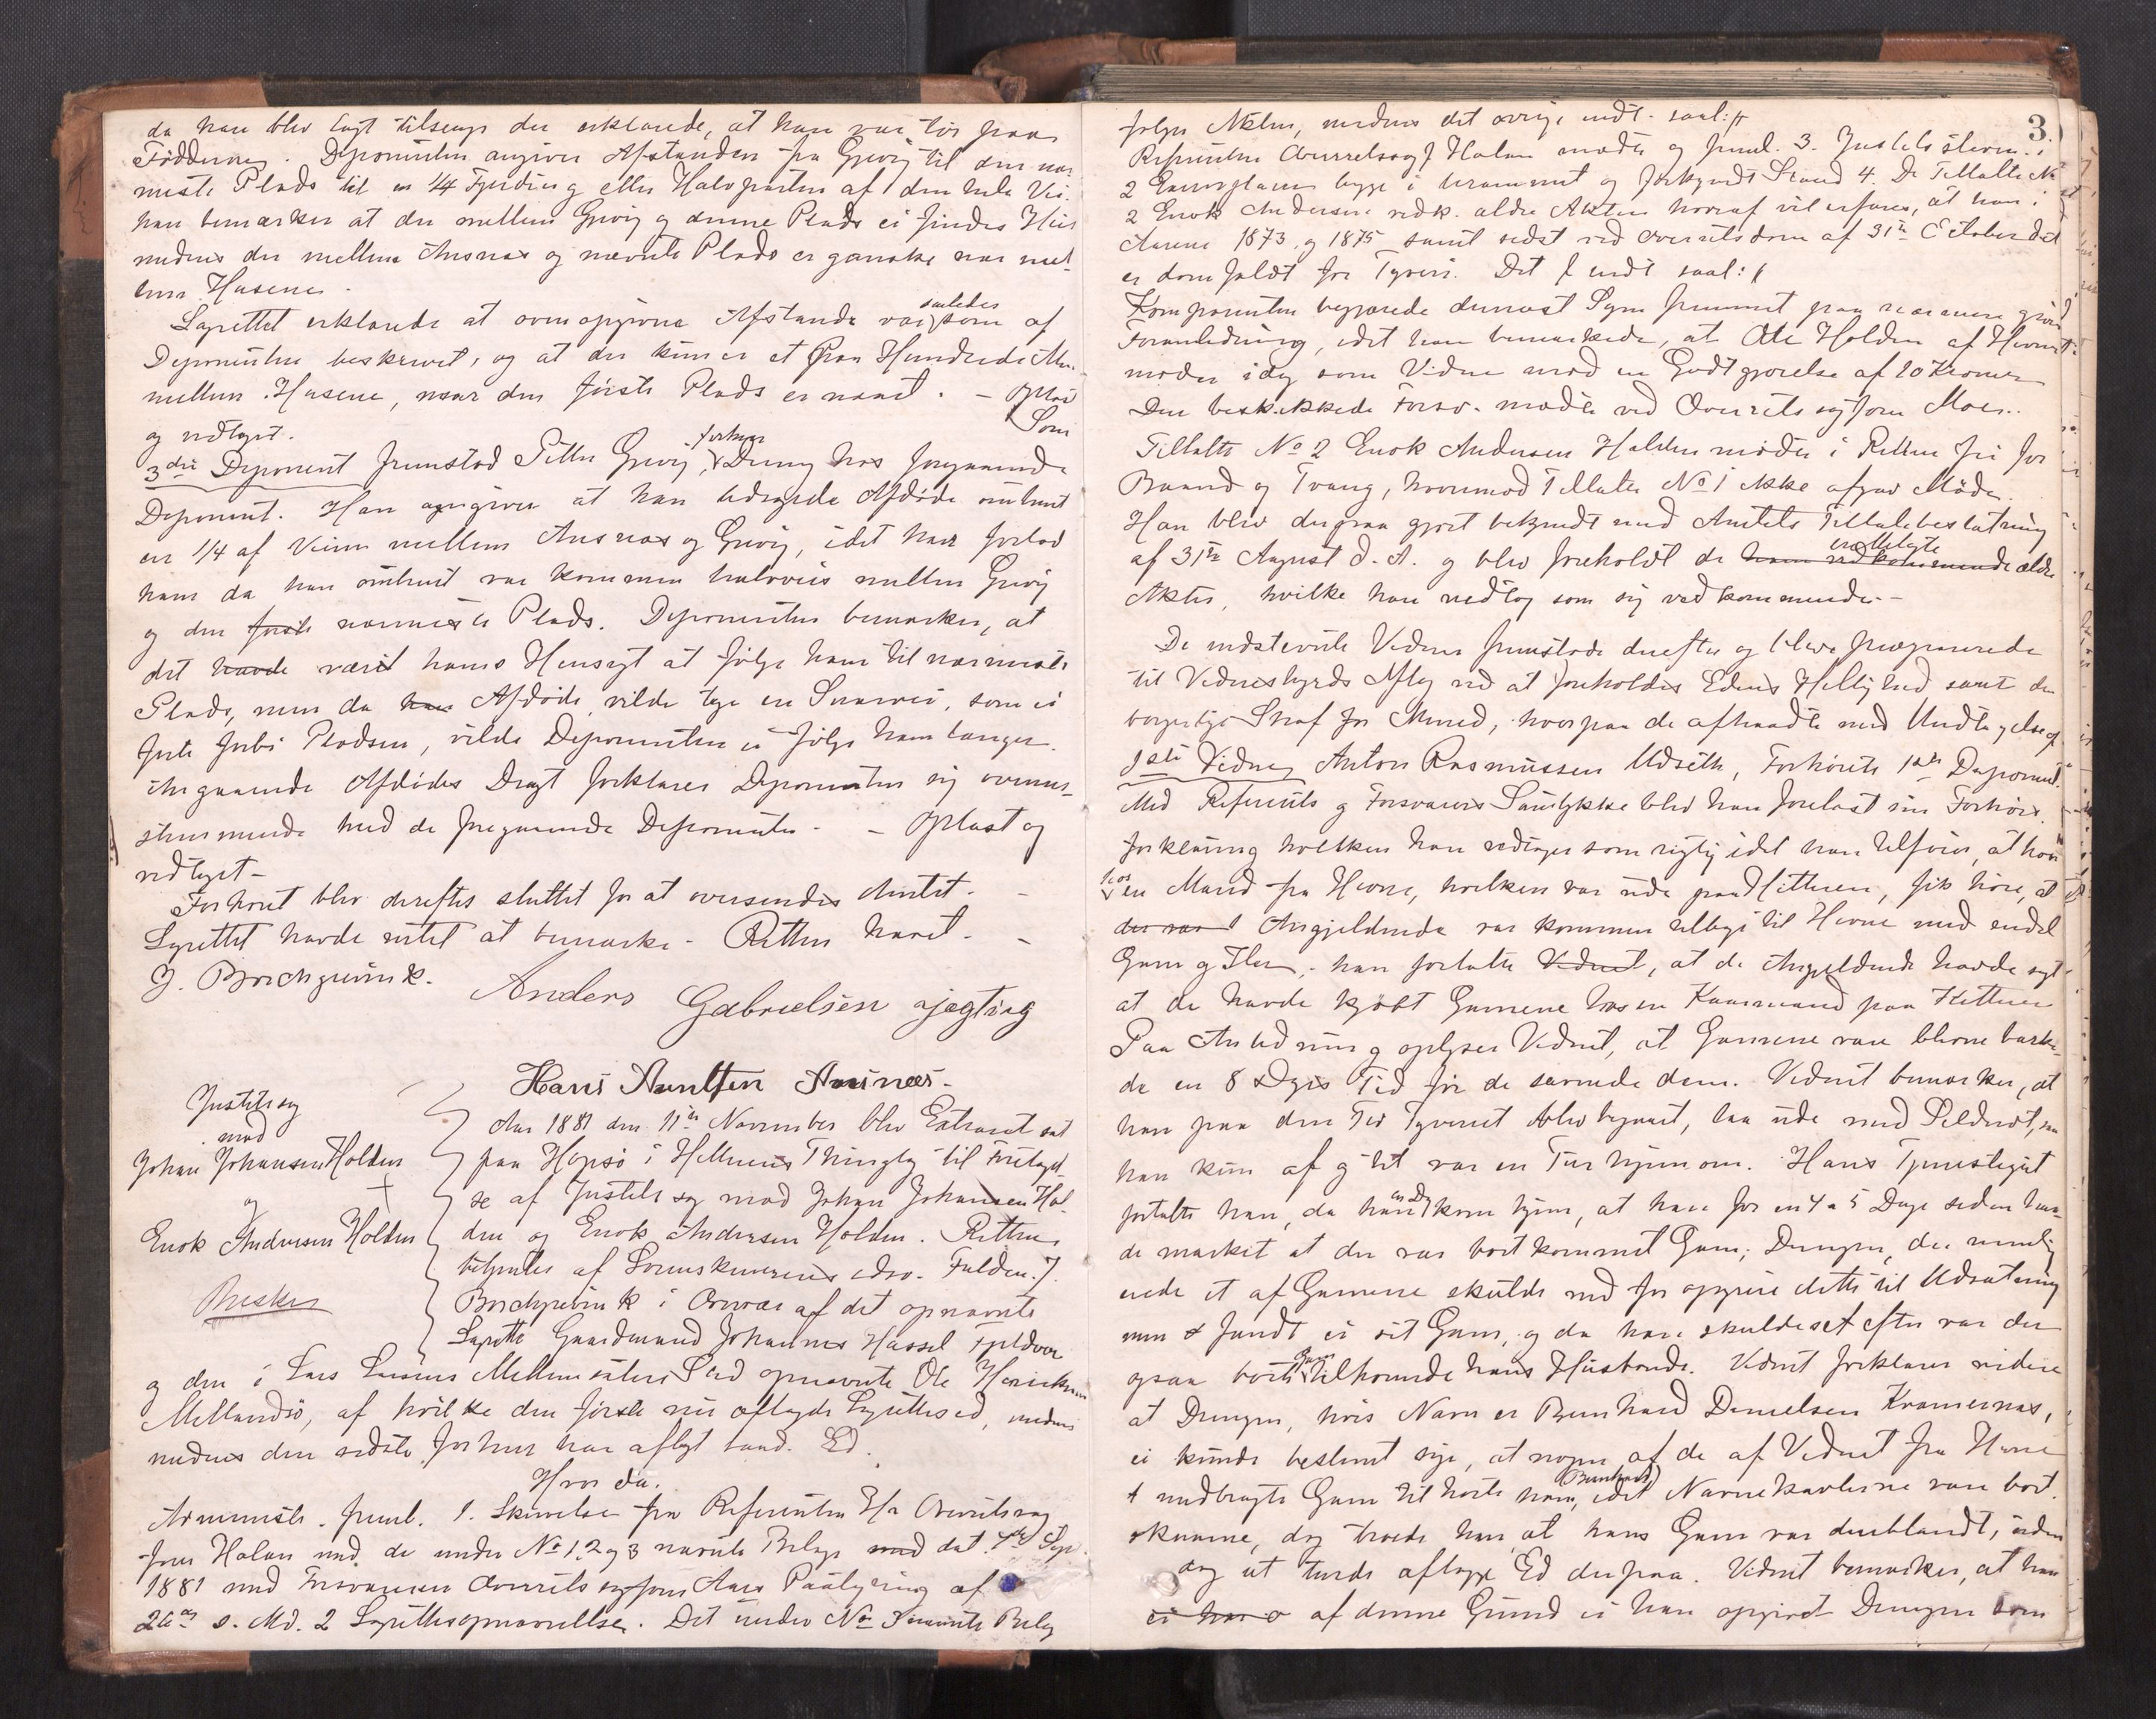 da han blev lagt tilsengs der erklærede, at han var tør paa
Fødderne. Deponenten angiver Afstanden fra Grevig til den nær
meste Plads til en 1/4 Fjerding eller Halvparten af den hele Vei.
han bemærker at der mellem Grevig og denne Plads ei findes Huse
medens der mellem Ansnæs og nævnte Plads er ganske nær mel-
lem Husene.
Lagrettet erklærede at ovenopgivne Afstande var saaledes som af
Deponenten beskrevet, og at der kun er et Par Hundrede
mellem Husene, naar den første Plads er naaet. – Oplæst
og vedtaget. Som
3die Deponent fremstod Petter Grevig, forhen Dreng hos foregaaende
Deponent. Han angiver at han ledsagede Afdøde omtrent
en 1/4 af Veien mellem Ansnæs og Grevig, idet han forlod
ham da han omtrent var kommen halvveis mellem Grevig
og den første nærmeste Plads. Deponenten bemærker, at
det havde været hans Hensigt at følge ham til nærmeste
Plads, men da han Afdøde vilde tage en Snarvei, som ei
førte forbi Pladsen, vilde Deponenten ei følge ham længer.
Angaaende Afdødes Dragt forklarer Deponenten sig overens-
stemmende med de foregaaende Deponenter. – Oplæst og
vedtaget –
Forhøret blev derefter sluttet for at oversendes Amtet. –
Lagrettet havde intet at bemærke – Retten hævet. –
J. Borchgrevink. Anders Gabrielsen Ajegting
Hans Arntsen Ansnæs.
Justitssag
mod
Johan Johansen Holden
og
Enok Andersen Holden
Aar 1881 den 11te November blev Extraret sat
paa Hopsjø i Hitterens Thinglag til Foretagel
se af Justitssag mod Johan Johansen Hol-
den og Enok Andersen Holden. Retten
betjentes af Sorenskriverens edsv. Fuldm. J.
Borchgrevink i Overvær af det opnævnte
Lagrette Gaardmand Johannes Hassel Fjeldvær
og den i Lars Larsens Mellemsæters Sted opnævnte Ole Henriksen
Mellandsø, af hvilke den første nu aflagde Lagrettesed, medens
medens den sidste forhen har aflagt saad. Ed.
Hvor da.
Administr. freml. 1. Skrivelse fra Referenten Hr Overretssag
fører Holan med de under No 1, 2 og 3 nævnte Bilage med dat. 4de Sept.
1881 med Forsvareren Overretssagfører Aars Paategning af
26de s. Md. 2 Lagrettesopnævnelse. Det under No 3 nævnte Bilag
3.
følger Akten, medens det øvrige indt. saal:
Referenten Overretssagf Holan mødte og freml. 3. Justitsstevn. i
2 Exemplarer begge i hrammet og forkyndt Stand 4. De Tiltalte No
2 Enok Andersen vedk. ældre Akter hvoraf vil erfares, at han i
Aarene 1873 og 1875 samt sidst ved Overretsdom af 31te October
er domfældt for Tyveri. Det f indt saal:
Komparenten begjærede dernæst Sagen fremmet paa nærmere given
Foranledning, idet han bemærkede, at Ole Holden af Hevne
møder idag som Vidne mod en Godtgjørelse af 10 Kroner
Den beskikkede Forsv. mødte ved Overretssagfører Moes.
Tiltalte No 2 Enok Andersen Holden møder i Retten fri for
Baand og Tvang, hvorimod Tiltalte No 1 ikke afgav Møde.
Han blev derpaa gjort bekjendt med Amtets Tiltalebeslutning
af 31te August d. A. og blev foreholdt de ham vedkommende ældre
Akter, hvilke han vedtog som sig vedkommende –
De indstevnte Vidner fremstode derefter og bleve præparerede
til Vidnesbyrds Aflæg ved at foreholdes Edens Hellighed samt den
borgerlige Straf for Mened, hvorpaa de aftraadte med Undtagelse af
1ste Vidne, Anton Rasmussen Udseth, Forhørets 1ste Deponent.
Med Referents og Forsvarers Samtykke blev han forelæst sin Forhørs
forklaring hvilken han vedtager som rigtig idet han tilføier, at han
hos en Mand fra Hevne, hvilken var ude paa Hitteren, fik høre, at
der var Angjeldende var kommen tilbage til Hevne med endel
Garn og Iler, – han fortalte Vidnet, at de Angjeldende havde sagt
at de havde kjøbt Garnene hos en Kaarmand paa Hitteren
Paa Anledning oplyser Vidnet, at Garnene vare blevne barke-
de en 8 Dages Tid før de savnede dem. Vidnet bemærker, at
han paa den Tid Tyveriet blev begaaet, laa ude med Sildnot, saa
han kun af og til var en Tur hjemom. Hans Tjenestegut
fortalte ham, da han en Dag kom hjem, at han for en 4 a 5 Dage siden hav-
de mærket at der var bortkommet Garn; Drengen, der nemlig
eiede et af Garnene skulde ned for at gjøre dette til Udsætning
men fandt ei sit Garn, og da han skulde set efter var der
ogsaa borte Garn tilhørende hans Husbonde. Vidnet forklarer videre
at Drengen, hvis Navn er Bernhard Danielsen Kramernæs,
ei kunde bestemt sige, at nogen af de af Vidnet fra Hevne
medbragte Garn tilhørte ham, (Bernhard) idet Navnekavlerne vare bort
skaarne, dog troede han at hans Garn var deriblandt, uden
dog at turde aflægge Ed derpaa. Vidnet bemærker, at han
ei har af denne Grund ei har opgivet Drengen som